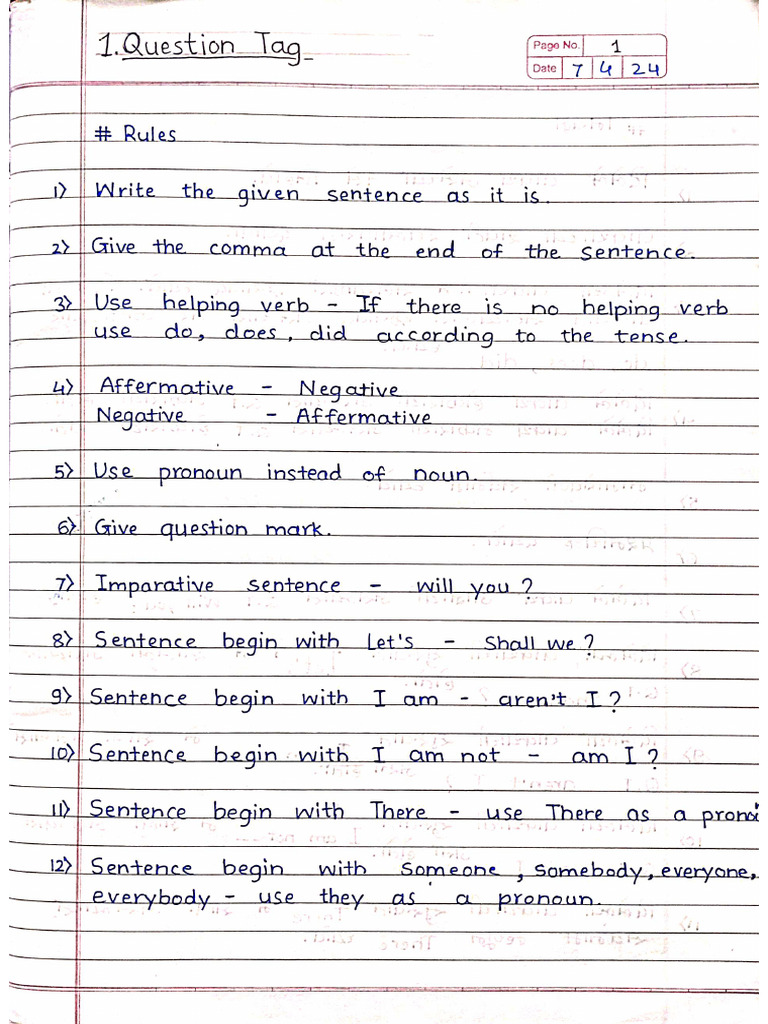 1. Question Tag
Page No. 1
Date 7 4 24
# Rules
1) Write the given sentence as it is.
2) Give the comma at the end of the sentence.
3) Use helping verb - If there is no helping verb
use do, does, did according to the tense.
4) Affermative - Negative
Negative - Affermative
5) Use pronoun instead of noun.
6) Give question mark.
7) Imparative sentence - will you?
8) Sentence begin with Let's - Shall we?
9) Sentence begin with I am - aren't I?
10) Sentence begin with I am not - am I?
11) Sentence begin with There - use There as a pronou
12) Sentence begin with someone, somebody, everyone,
everybody - use they as a pronoun.